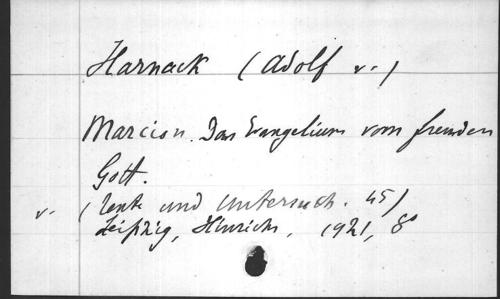 Harnack (Adolf v.)
Marcion. Das Evangelium vom fremden
Gott.
v. (Texte und Untersuch. 45)
Leipzig, Hinrichs, 1921, 8°